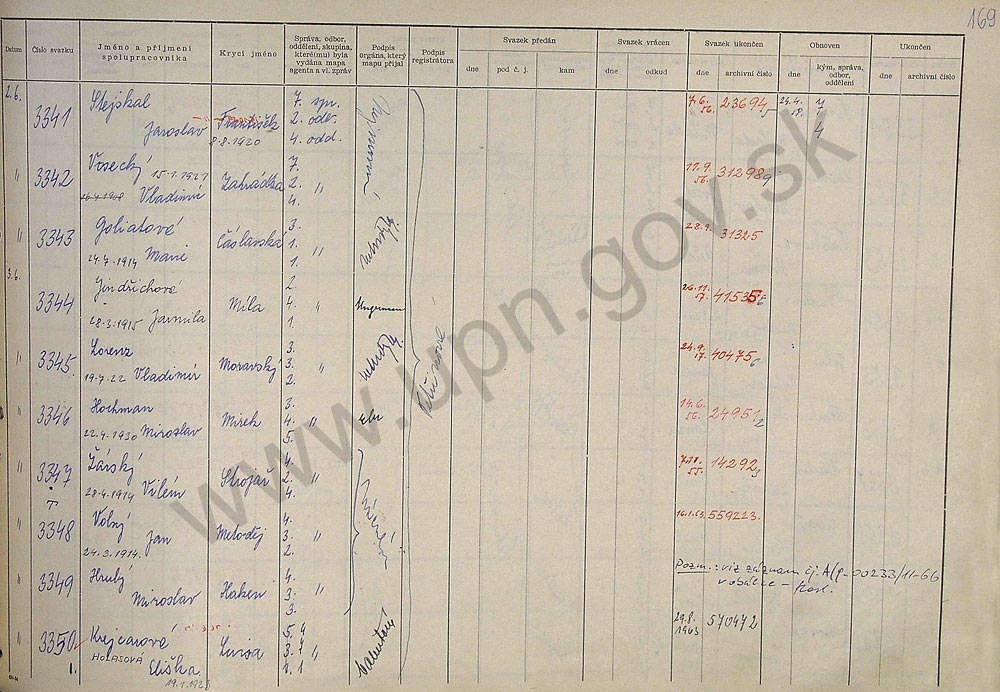 169
Datum
Číslo svazku
Jméno a příjmení
spolupracovníka
Krycí jméno
Správa, odbor,
oddělení, skupina,
které(mu) byla
vydána mapa
agenta a vl. zpráv
Podpis
orgána, který
mapu přijal
Podpis
registrátora
Svazek předán
dne
pod č. j.
kam
Svazek vrácen
dne
odkud
Svazek ukončen
dne
archivní číslo
Obnoven
dne
kým, správa,
odbor,
oddělení
Ukončen
dne
archivní číslo
2.6.
3341
Stejskal
Jaroslav
František
8-8-1920
7. spr.
2. odb.
4. odd.
7.6.
56.
23694
24.4.
58.
7
4
"
3342
Vosecký
15-1-1927
16-4-1908
Vladimír
Zahrádka
7.
2. "
4.
17.9.
56.
31298
"
3343
Goliatové
24-7-1914 Marie
Čáslavská
3.
1. "
1.
28.9.
31325
3.6.
3344
Jindřichové
28-3-1915 Jarmila
Míla
2.
4. "
1.
Ungerman
26.11.
57.
41535
"
3345
Lorenz
19-4-22 Vladimír
Moravský
3.
3. "
2.
24.9.
57.
40475
6
"
3346
Hochman
22.4.1930 Miroslav
Mirek
3.
4. "
5.
14.6.
56.
24951
2
"
3347
Žárský
28-4-1914 Vilém
Strojař
4.
2. "
4.
55.
14292
3
"
3348
Volný
24-3-1914. Jan
Metoděj
4.
3. "
2.
16.1.63.
559223.
"
3349
Hrubý
Miroslav
Haken
4.
3. "
3.
Pozn.: viz záznam čj. A/9-00233/11-66
v obálce –
"
3350
Krejcarové
HOLASOVÁ
1.
Eliška
19.1.192
Luisa
5. 4
3. 7 "
2. 1
Valentová
29.8.
1963
570472
www.upn.gov.sk